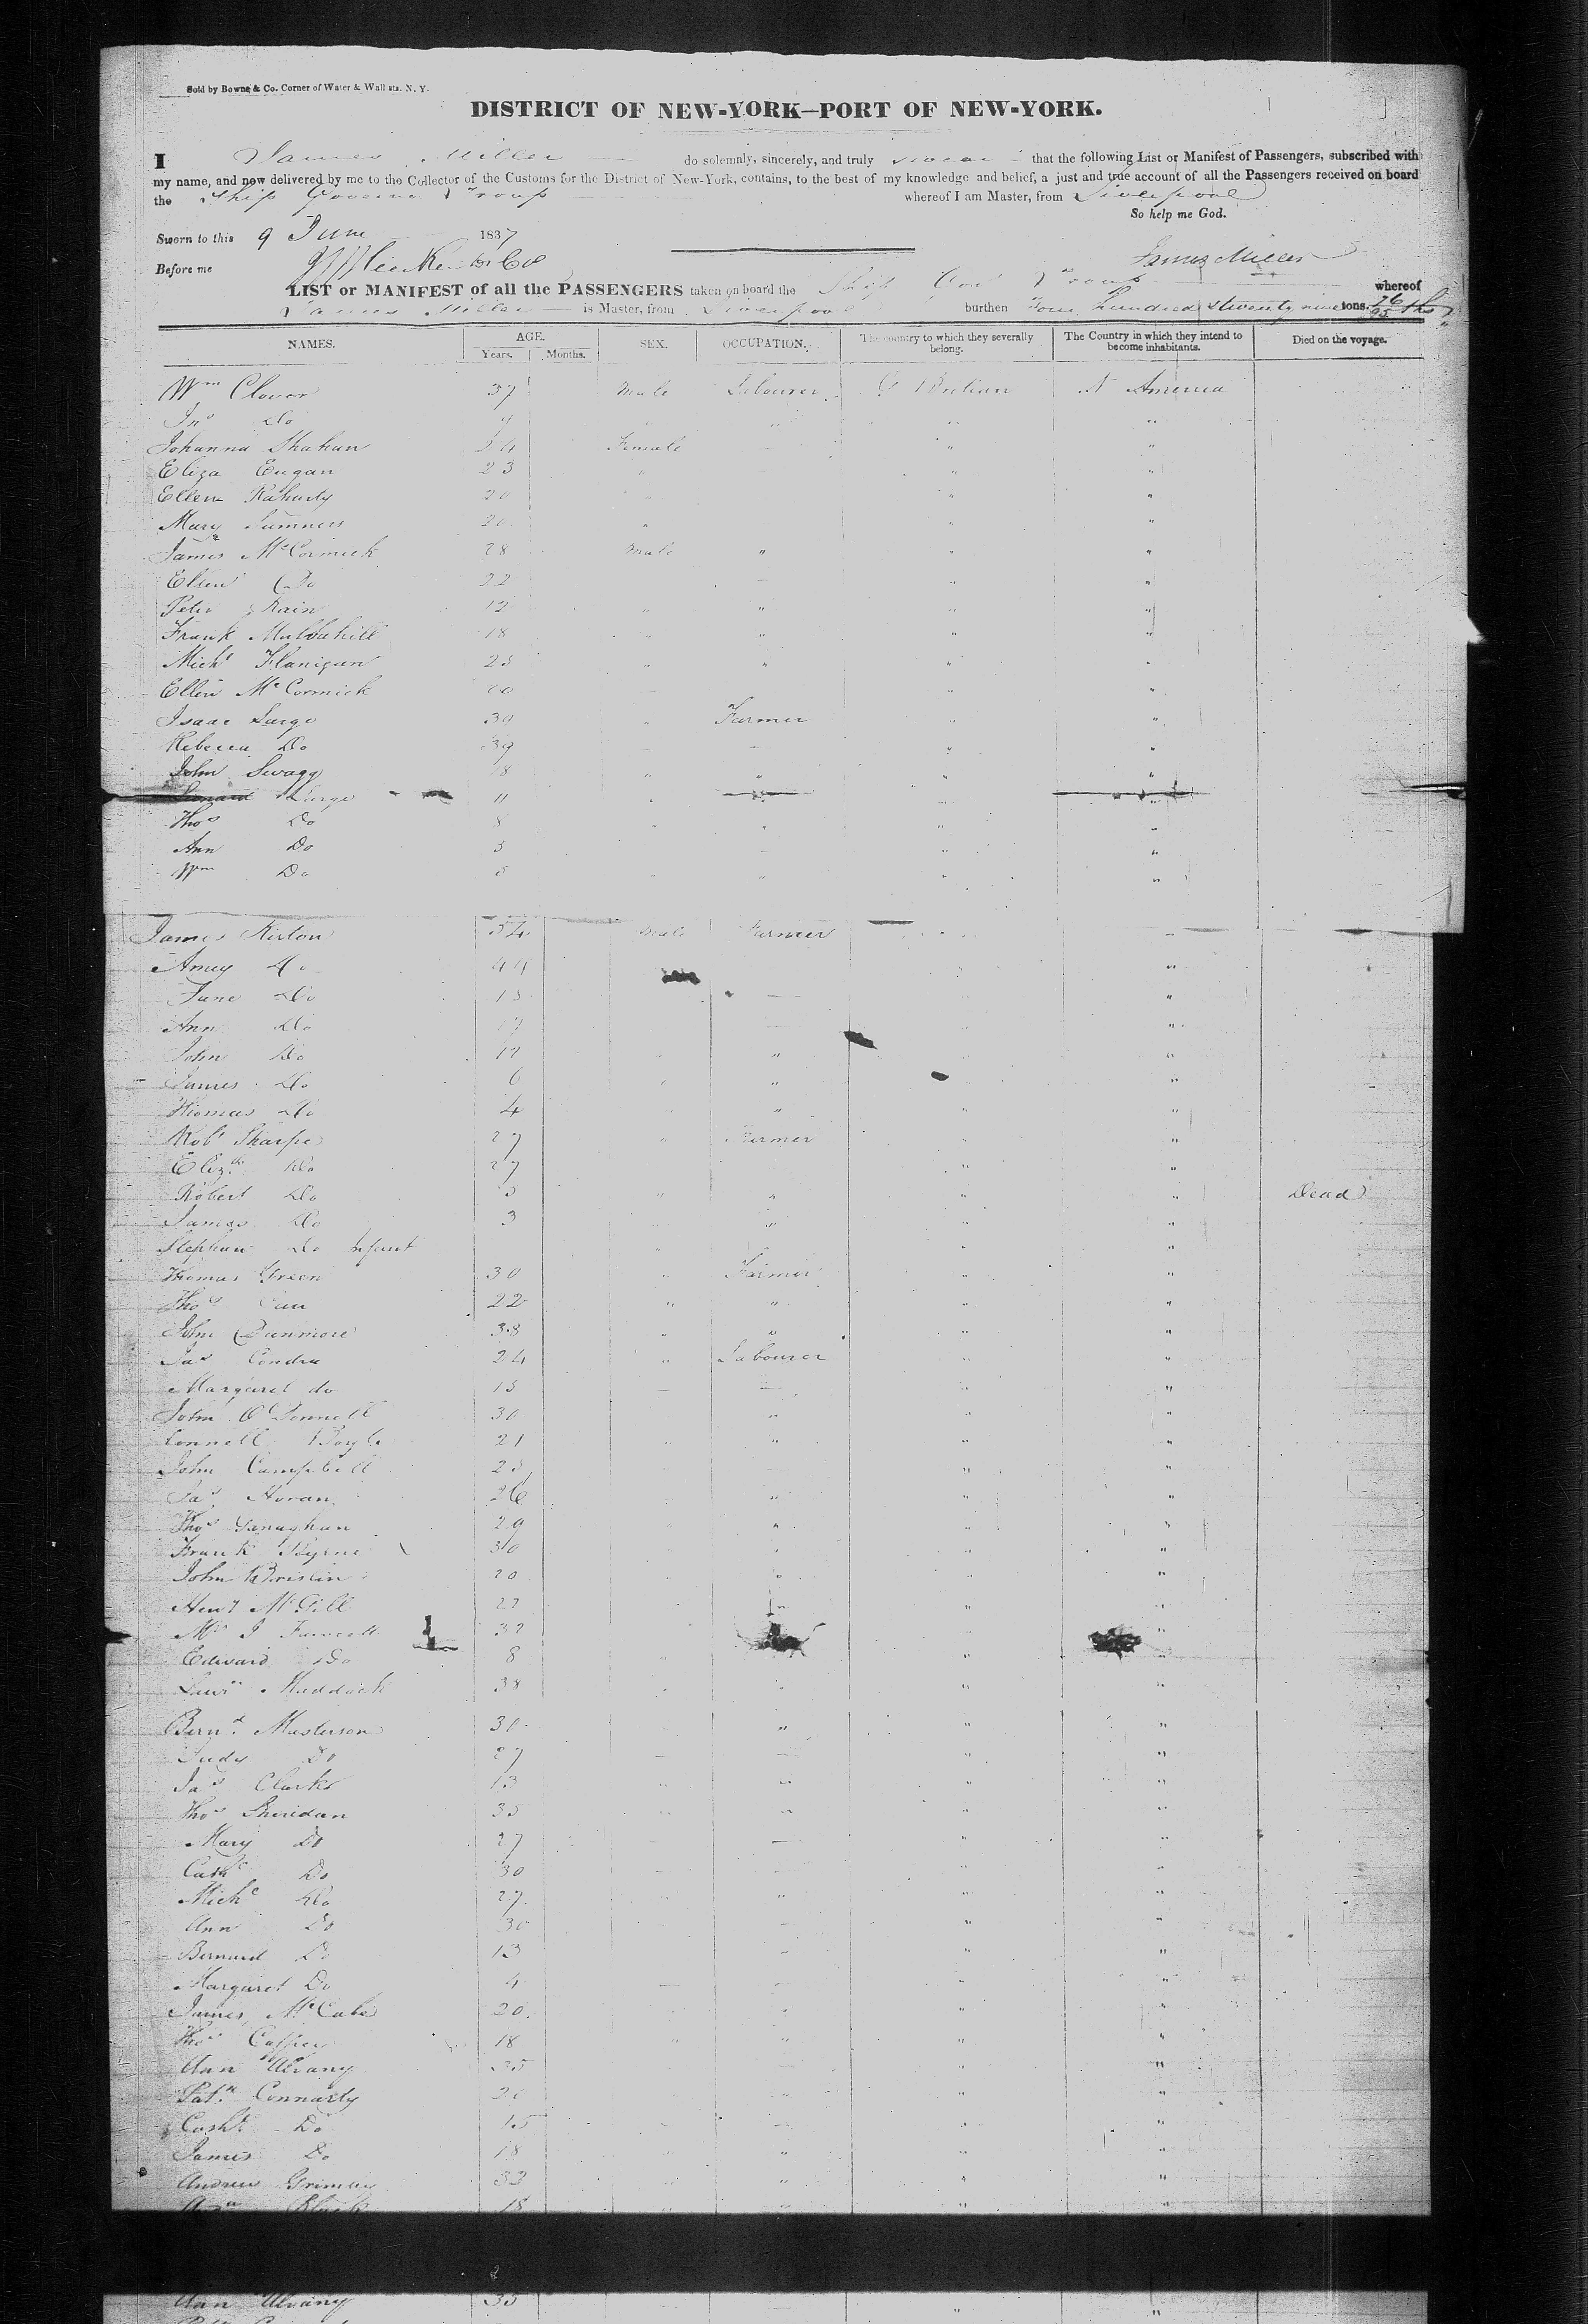 Sold by Bowne & Co. Corner of Water & Wall sts. N. Y.
DISTRICT OF NEW-YORK—PORT OF NEW-YORK.
I James Miller do solemnly, sincerely, and truly swear that the following List or Manifest of Passengers, subscribed with
my name, and now delivered by me to the Collector of the Customs for the District of New-York, contains, to the best of my knowledge and belief, a just and true account of all the Passengers received on board
the Ship Governor Troup whereof I am Master, from Liverpool
So help me God.
Sworn to this 9 June 1837
James Miller
Before me
LIST or MANIFEST of all the PASSENGERS taken on board the Ship Gov Troup whereof
James Miller is Master, from Liverpool burthen Four hundred & twenty nine tons. 26/95 ths
NAMES. AGE. Years. Months. SEX. OCCUPATION. The country to which they severally belong. The Country in which they intend to become inhabitants. Died on the voyage.
Wm Clover 37 Male Labourer G Britian N America
Jno Do 9 " " "
Johanna Shahan 24 Female " "
Eliza Eugan 23 " " "
Ellen 20 " "
Mary Sumners 20 " " "
James McCormick 28 Male " " "
Ellen Do 22 " "
Peter 12 " " " "
Frank 18 " " " "
Michl Flanigan 25 " " " "
Ellen McCormick 20 " "
Isaac Large 30 " Farmer " "
Rebecca Do 39 " "
John Swagg 18 " " " "
Large 11 " "
Thos Do 8 " " "
Ann Do 5 " "
Wm Do 5 " " " "
James Kirton 54 Male Farmer "
Amey Do 44 "
Jane Do 15 — "
Ann Do 17 "
John Do 12 " "
James Do 6 " "
Thomas Do 4 " "
Robt Sharpe 27 " Farmer " "
Elizth Do 27 " "
Robert Do 5 " " " " Dead
James Do 3 " "
Stephen Do Infant " "
Thomas Green 30 " Farmer " "
Thos 22 " " " "
John Dunmore 38 " " " "
Jas Condra 24 " Labourer " "
Margaret do 15 — — " "
John O'Donnell 30 " " "
Connell Boyle 21 " " " "
John Campbell 25 " "
Jas Horan 26 " " "
Thos 29 " " "
Frank Byrne 30 " " "
John Breslin 20 " " "
Heny McGill 27 " "
Mr J Fawcett 32 " "
Edward Do 8 " " "
Lawr Maddock 38 " " " "
Bernd Masterson 30 " " "
Judy Do 27 — — " "
Jas Clarke 13 " " " "
Thos Sheridan 35 " " " "
Mary Do 27 — " "
Cathe Do 30 " "
Michl Do 27 " " "
Ann Do 30 — " "
Bernard Do 13 " " "
Margaret Do 4 — — " "
James McCabe 20 " " "
Thos Caffrey 18 " " " "
Ann Alvany 35 — " "
Patk Connarty 20 " " "
Cathe Do 15 — " "
James Do 18 " " "
Andrew Grimley 33 " " "
18 " " "
Ann Alvany 35
" "